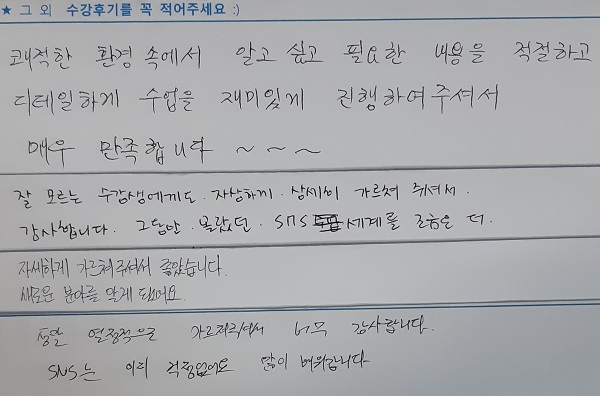 ★ 그 외 수강후기를 꼭 적어주세요 :)
쾌적한 환경 속에서 알고 싶고 필요한 내용을 적절하고
디테일하게 수업을 재미있게 진행하여주셔서
매우 만족합니다 ~ ~ ~
잘 모르는 수강생에게도. 자상하게. 상세히 가르쳐 주셔서.
감사합니다. 그동안. 몰랐던. SNS 세계를 조금은 더.
자세하게 가르쳐주셔서 좋았습니다.
새로운 분야를 알게 되었어요.
정말 열정적으로 가르쳐주셔서 너무 감사합니다.
SNS는 이리 걱정없어요 많이 배워갑니다